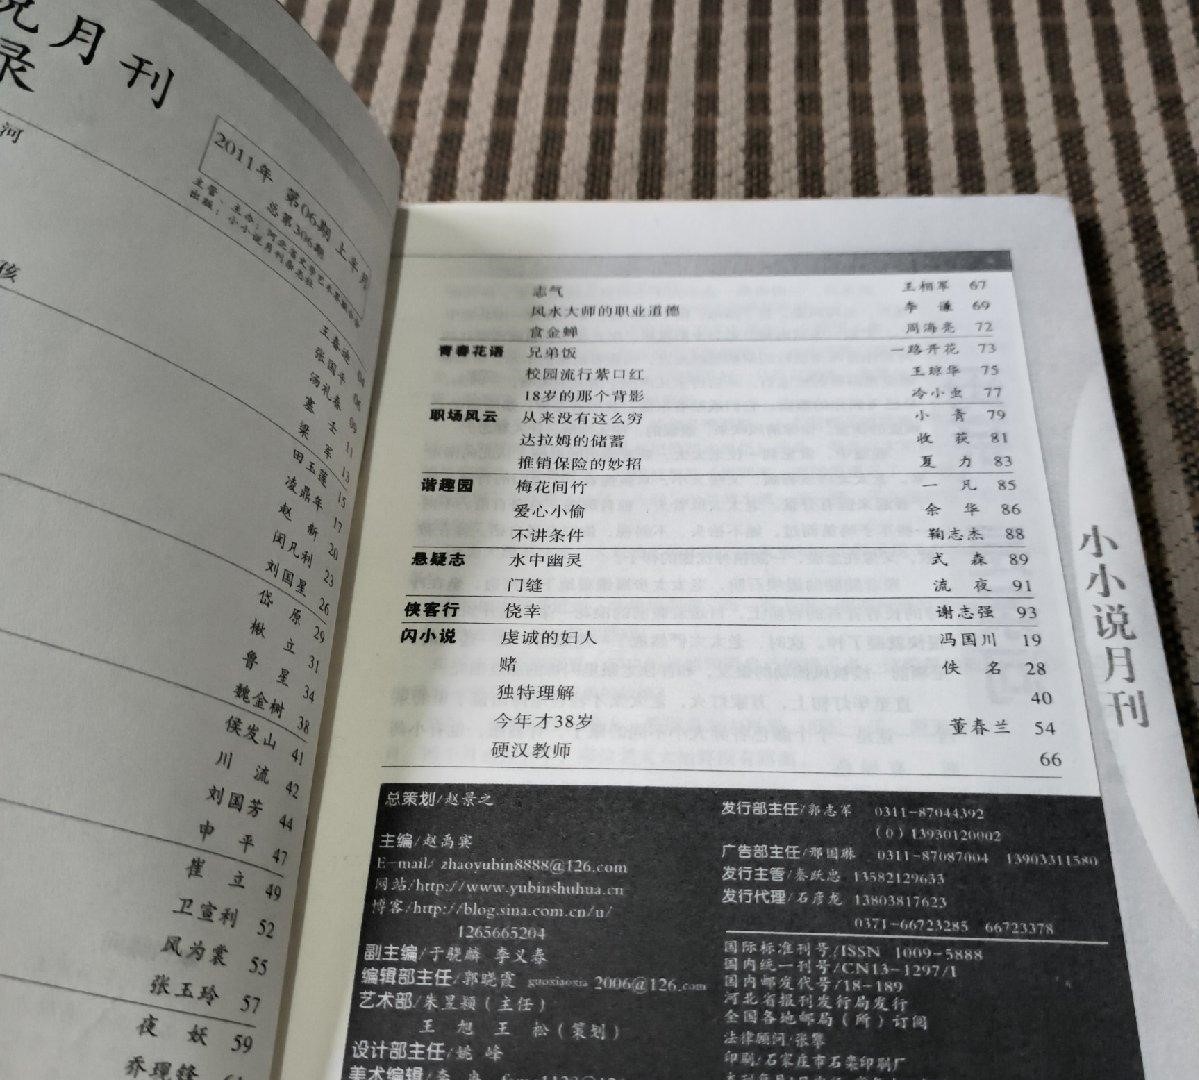 说月刊
录
河
孩
2011年 第06期 上半月
总第306期
主管、主办：河北省文学艺术界联合会
出版：小小说月刊杂志社
王春迪 04
张国平 06
汤礼春 09
塞壬 11
梁军 13
田玉莲 15
凌鼎年 17
赵新 20
闵凡利 23
刘国星 26
岱原 29
楸立 31
鲁星 34
魏金树 38
侯发山 41
川流 42
刘国芳 44
申平 47
崔立 49
卫宣利 52
风为裳 55
张玉玲 57
夜妖 59
志气 王相军 67
风水大师的职业道德 李谦 69
食金蝉 周海亮 72
青春花语 兄弟饭 一路开花 73
校园流行紫口红 王琼华 75
18岁的那个背影 冷小虫 77
职场风云 从来没有这么穷 小青 79
达拉姆的储蓄 收获 81
推销保险的妙招 夏力 83
谐趣园 梅花间竹 一凡 85
爱心小偷 余华 86
不讲条件 鞠志杰 88
悬疑志 水中幽灵 式森 89
门缝 流夜 91
侠客行 侥幸 谢志强 93
闪小说 虔诚的妇人 冯国川 19
赌 佚名 28
独特理解 40
今年才38岁 董春兰 54
硬汉教师 66
小小说月刊
总策划/赵景之
主编/赵禹宾
E-mail/ zhaoyubin8888@126.com
网站/http://www.yubinshuhua.cn
博客/http://blog.sina.com.cn/u/
1265665204
副主编/于晓麟 李义春
编辑部主任/郭晓霞 guoxiaoxia 2006@126.com
艺术部/朱昱颖（主任）
王旭 王松（策划）
设计部主任/姚峰
美术编辑/
发行部主任/郭志军 0311-87044392
（0）13930120002
广告部主任/邢国琳 0311-87087004 13903311580
发行主管/秦跃忠 13582129633
发行代理/石彦龙 13803817623
0371-66723285 66723378
国际标准刊号/ISSN 1009-5888
国内统一刊号/CN13-1297/I
国内邮发代号/18-189
河北省报刊发行局发行
全国各地邮局（所）订阅
法律顾问/张擎
印刷/石家庄市石栾印刷厂